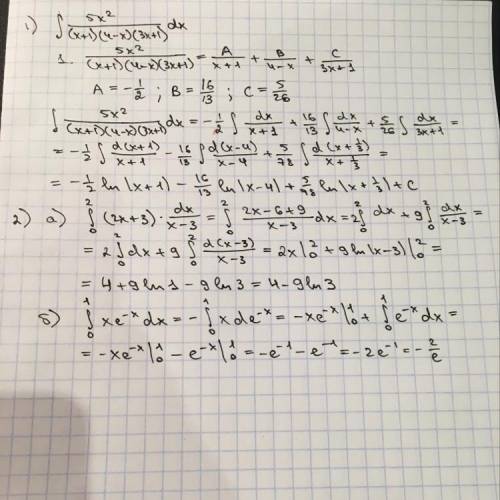 1) ∫ 5x²/((x+1)(4-x)(3x+1)) dx
1. 5x²/((x+1)(4-x)(3x+1)) = A/(x+1) + B/(4-x) + C/(3x+1)
A = -1/2 ; B = 16/13 ; C = 5/26
∫ 5x²/((x+1)(4-x)(3x+1)) dx = -1/2 ∫ dx/(x+1) + 16/13 ∫ dx/(4-x) + 5/26 ∫ dx/(3x+1) =
= -1/2 ∫ d(x+1)/(x+1) - 16/13 ∫ d(x-4)/(x-4) + 5/78 ∫ d(x+1/3)/(x+1/3) =
= -1/2 ln|x+1| - 16/13 ln|x-4| + 5/78 ln|x+1/3| + C
2) а) ∫₀² (2x+3)·dx/(x-3) = ∫₀² (2x-6+9)/(x-3) dx = 2∫₀² dx + 9∫₀² dx/(x-3) =
= 2∫₀² dx + 9∫₀² d(x-3)/(x-3) = 2x|₀² + 9ln|x-3||₀² =
= 4 + 9ln1 - 9ln3 = 4 - 9ln3
б) ∫₀¹ xe⁻ˣdx = -∫₀¹ x de⁻ˣ = -xe⁻ˣ|₀¹ + ∫₀¹ e⁻ˣdx =
= -xe⁻ˣ|₀¹ - e⁻ˣ|₀¹ = -e⁻¹ - e⁻¹ = -2e⁻¹ = -2/e